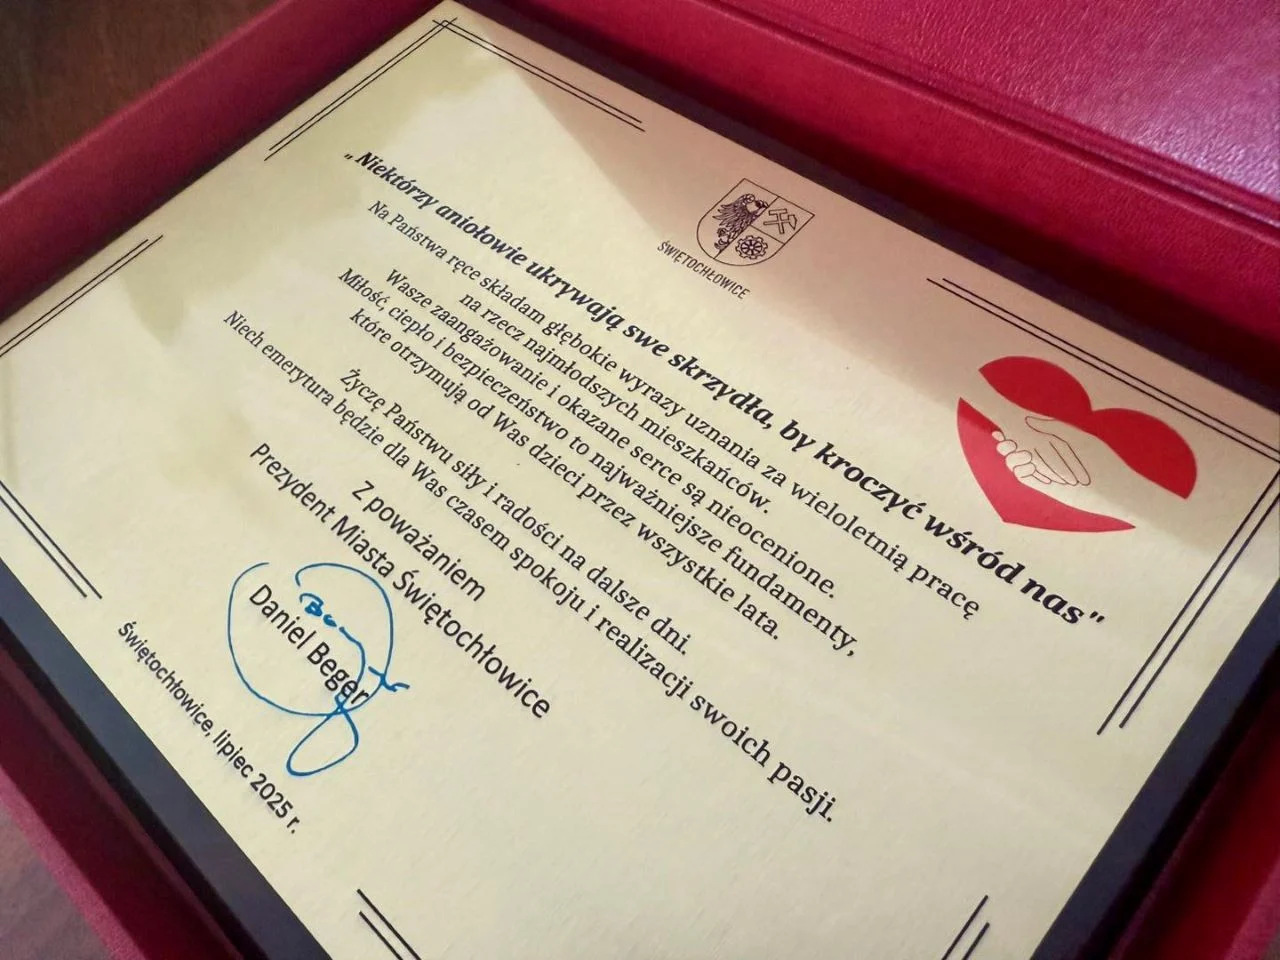 ŚWIĘTOCHŁOWICE
„Niektórzy aniołowie ukrywają swe skrzydła, by kroczyć wśród nas"
Na Państwa ręce składam głębokie wyrazy uznania za wieloletnią pracę
na rzecz najmłodszych mieszkańców.
Wasze zaangażowanie i okazane serce są nieocenione.
Miłość, ciepło i bezpieczeństwo to najważniejsze fundamenty,
które otrzymują od Was dzieci przez wszystkie lata.
Życzę Państwu siły i radości na dalsze dni.
Niech emerytura będzie dla Was czasem spokoju i realizacji swoich pasji.
Z poważaniem
Prezydent Miasta Świętochłowice
Daniel Beger
Świętochłowice, lipiec 2025 r.